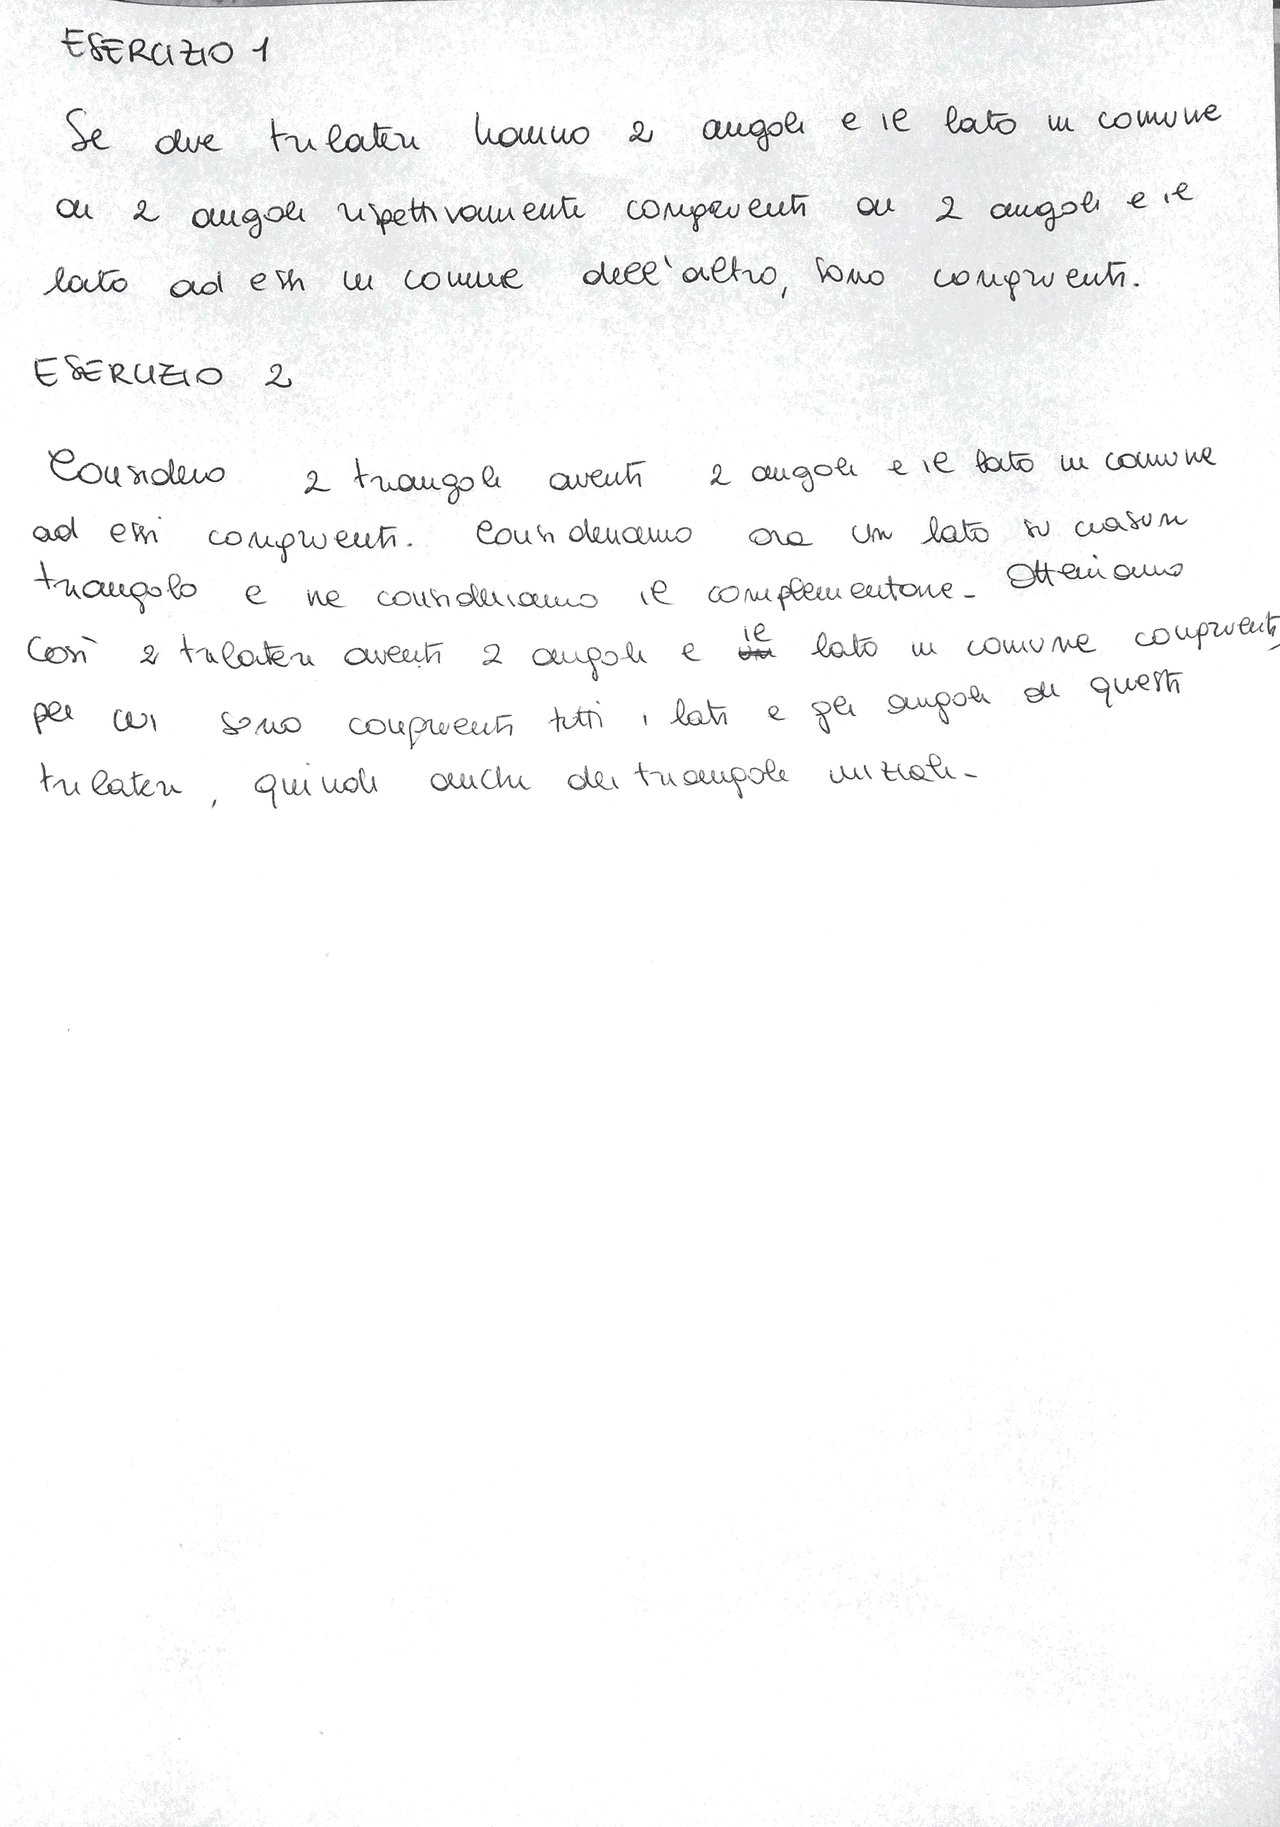 ESERCIZIO 1
Se due trilateri hanno 2 angoli e il lato in comune
ai 2 angoli rispettivamente congruenti ai 2 angoli e il
lato ad essi in comune dell'altro, sono congruenti.
ESERCIZIO 2
Considero 2 triangoli aventi 2 angoli e il lato in comune
ad essi congruenti. Consideriamo ora un lato su ciascun
triangolo e ne consideriamo il complementare. Otteniamo
Così 2 trilateri aventi 2 angoli e il lato in comune congruenti,
per cui sono congruenti tutti i lati e gli angoli di questi
trilateri, quindi anche dei triangoli iniziali.